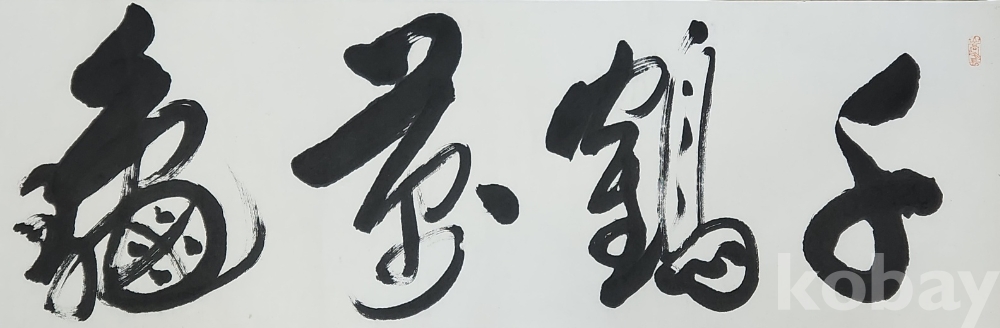 千鶴萬龜
kobay